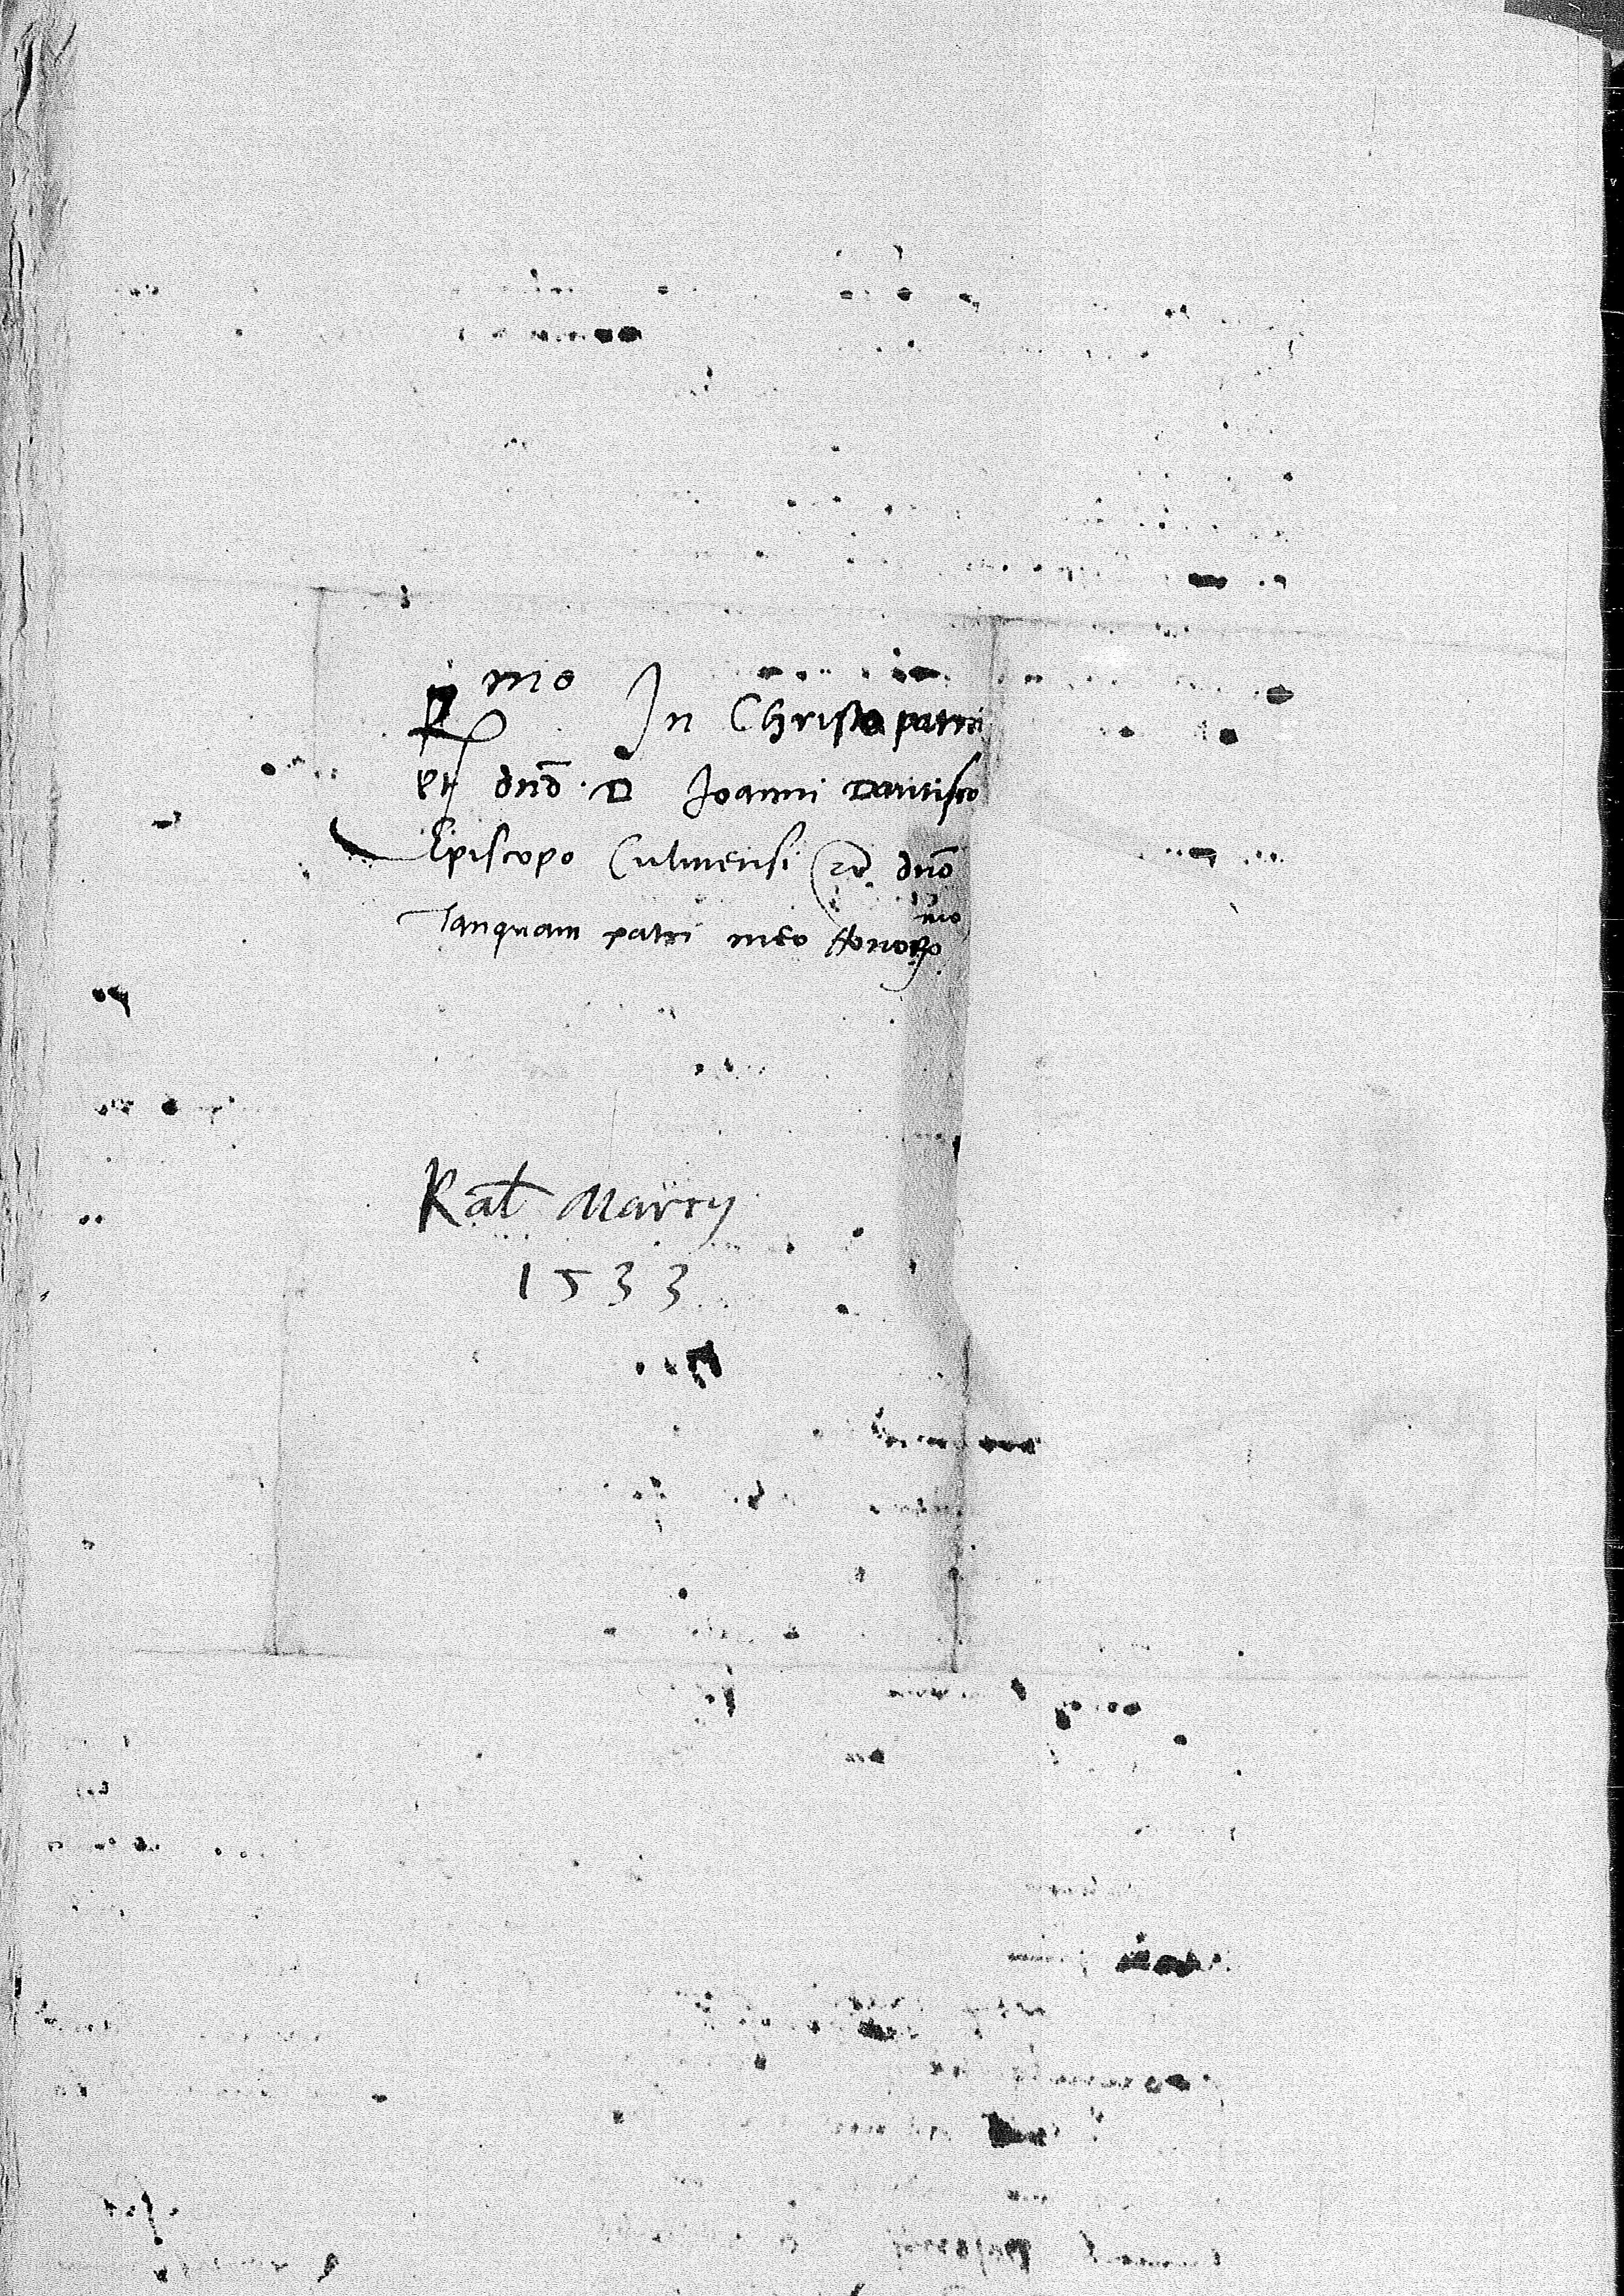 R mo In Christo patri
et dno. D Joanni Dantisco
Episcopo Culmensi dno
Tanquam patri meo Honor mo
Kal Marcy
1533